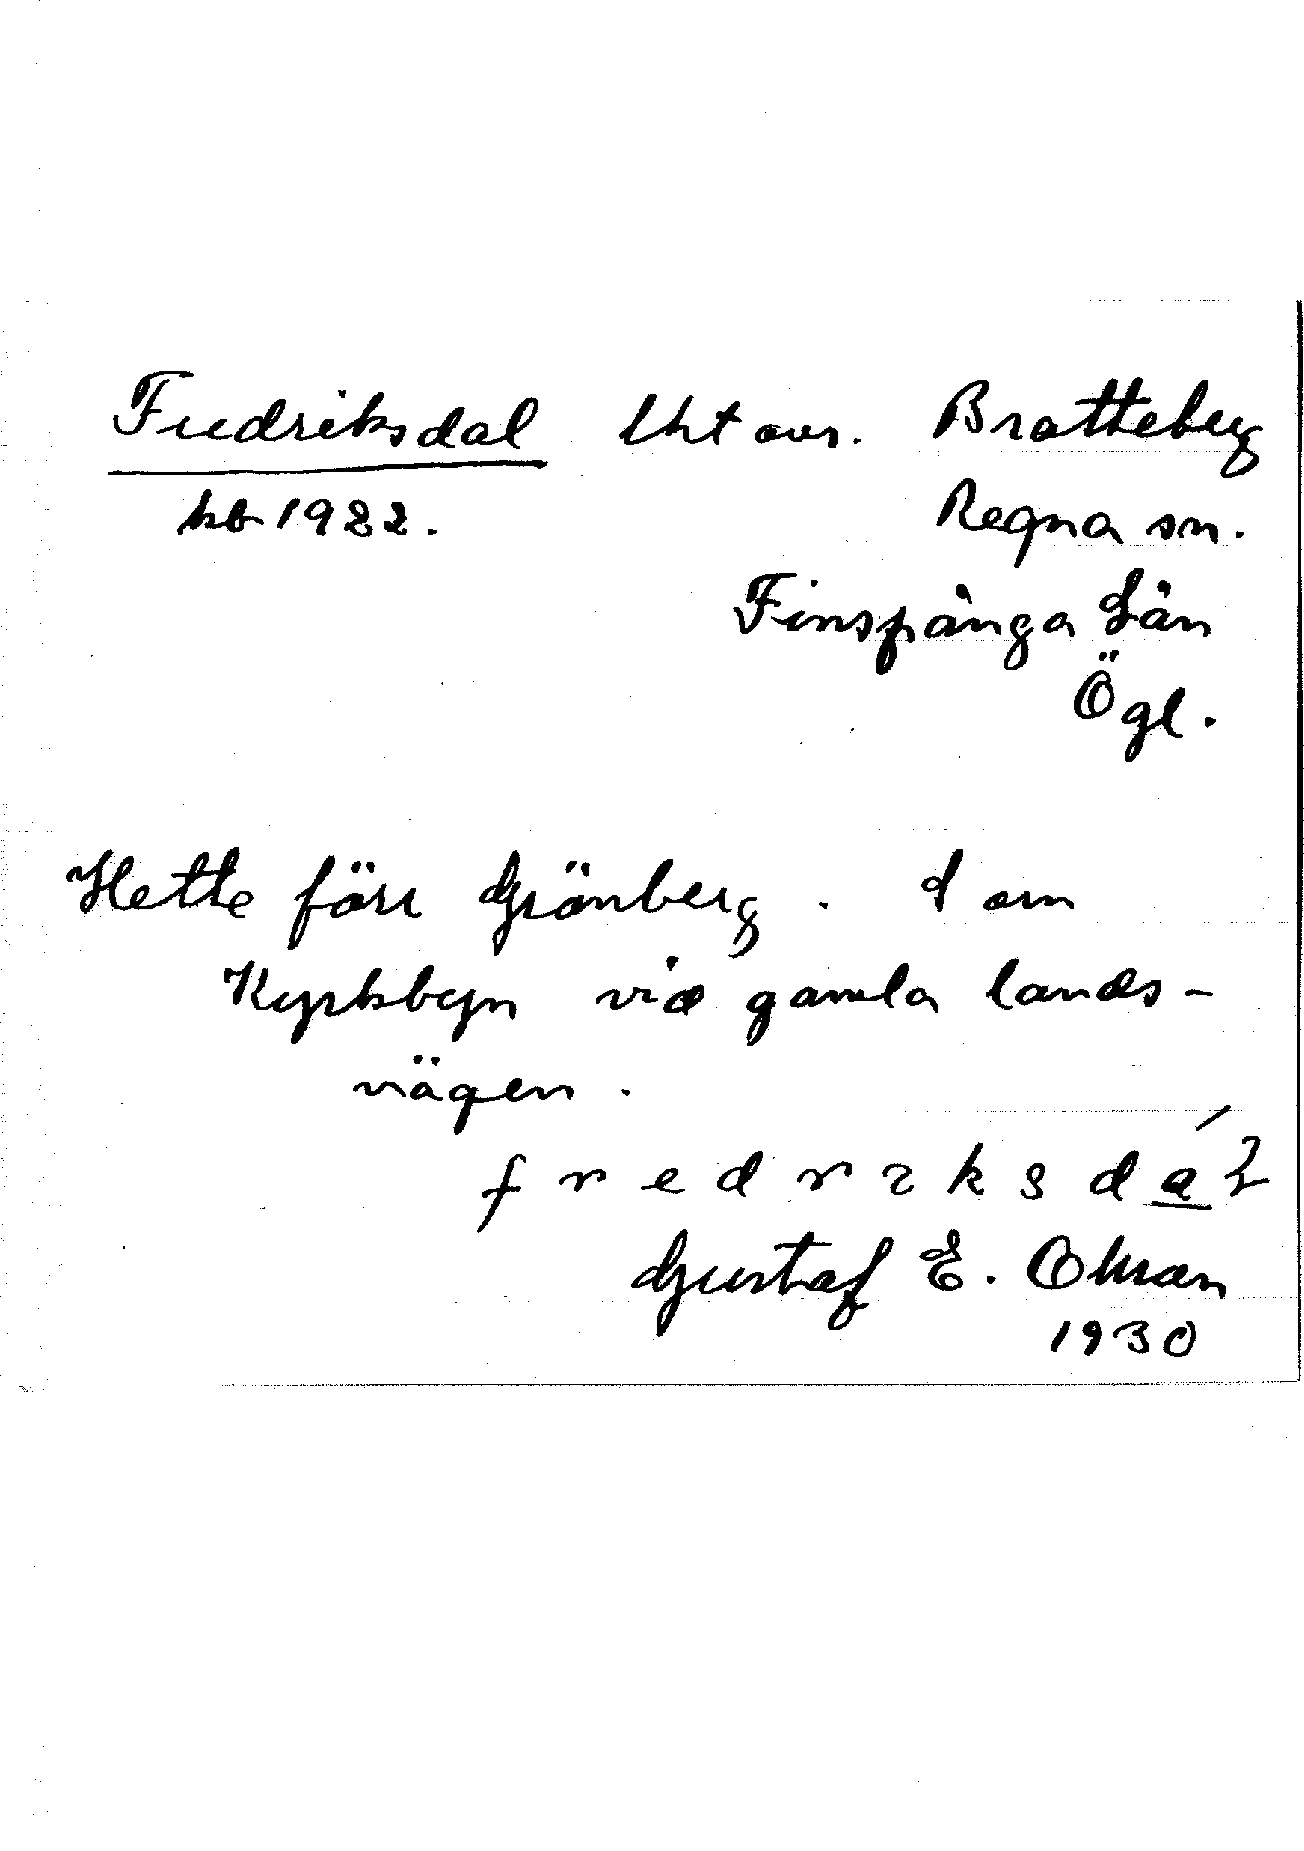 Fredriksdal lht avs. Bratteberg
kb 1922. Regna sn.
Finspånga Län
Ögl.
Hette förr Grönberg. S om
Kyrkbyn vid gamla lands-
vägen.
Gustaf E. Ohman
1930